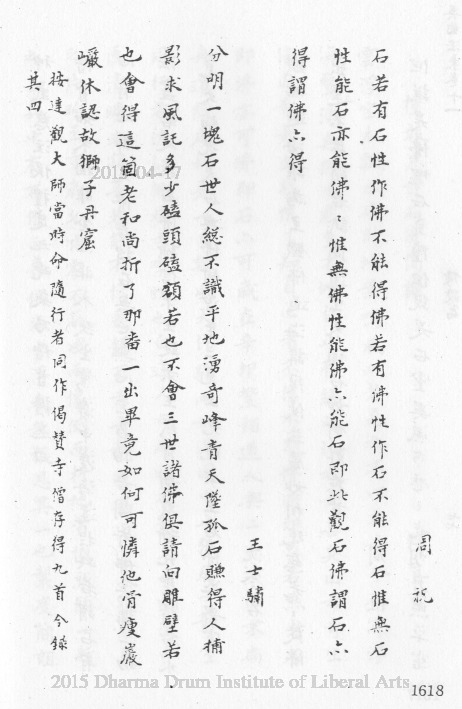 周祝
石若有石性作佛不能得佛若有佛性作石不能得石惟無石
性能石亦能佛〻惟無佛性能佛亦能石即此觀石佛謂石亦
得謂佛亦得
王士驌
分明一塊石世人總不識平地湧奇峰青天墮孤石賺得人捕
影求風記多少磕頭磕額若也不會三世諸佛俱請向雕壁若
也會得這箇老和尚折了那畨一出畢竟如何可憐他骨瘦巖
巖休認故獅子丹窟
按達觀大師當時命隨行者同作偈贊寺僧存得九首今錄
其四
2015-04-17
2015 Dharma Drum Institute of Liberal Arts
1618